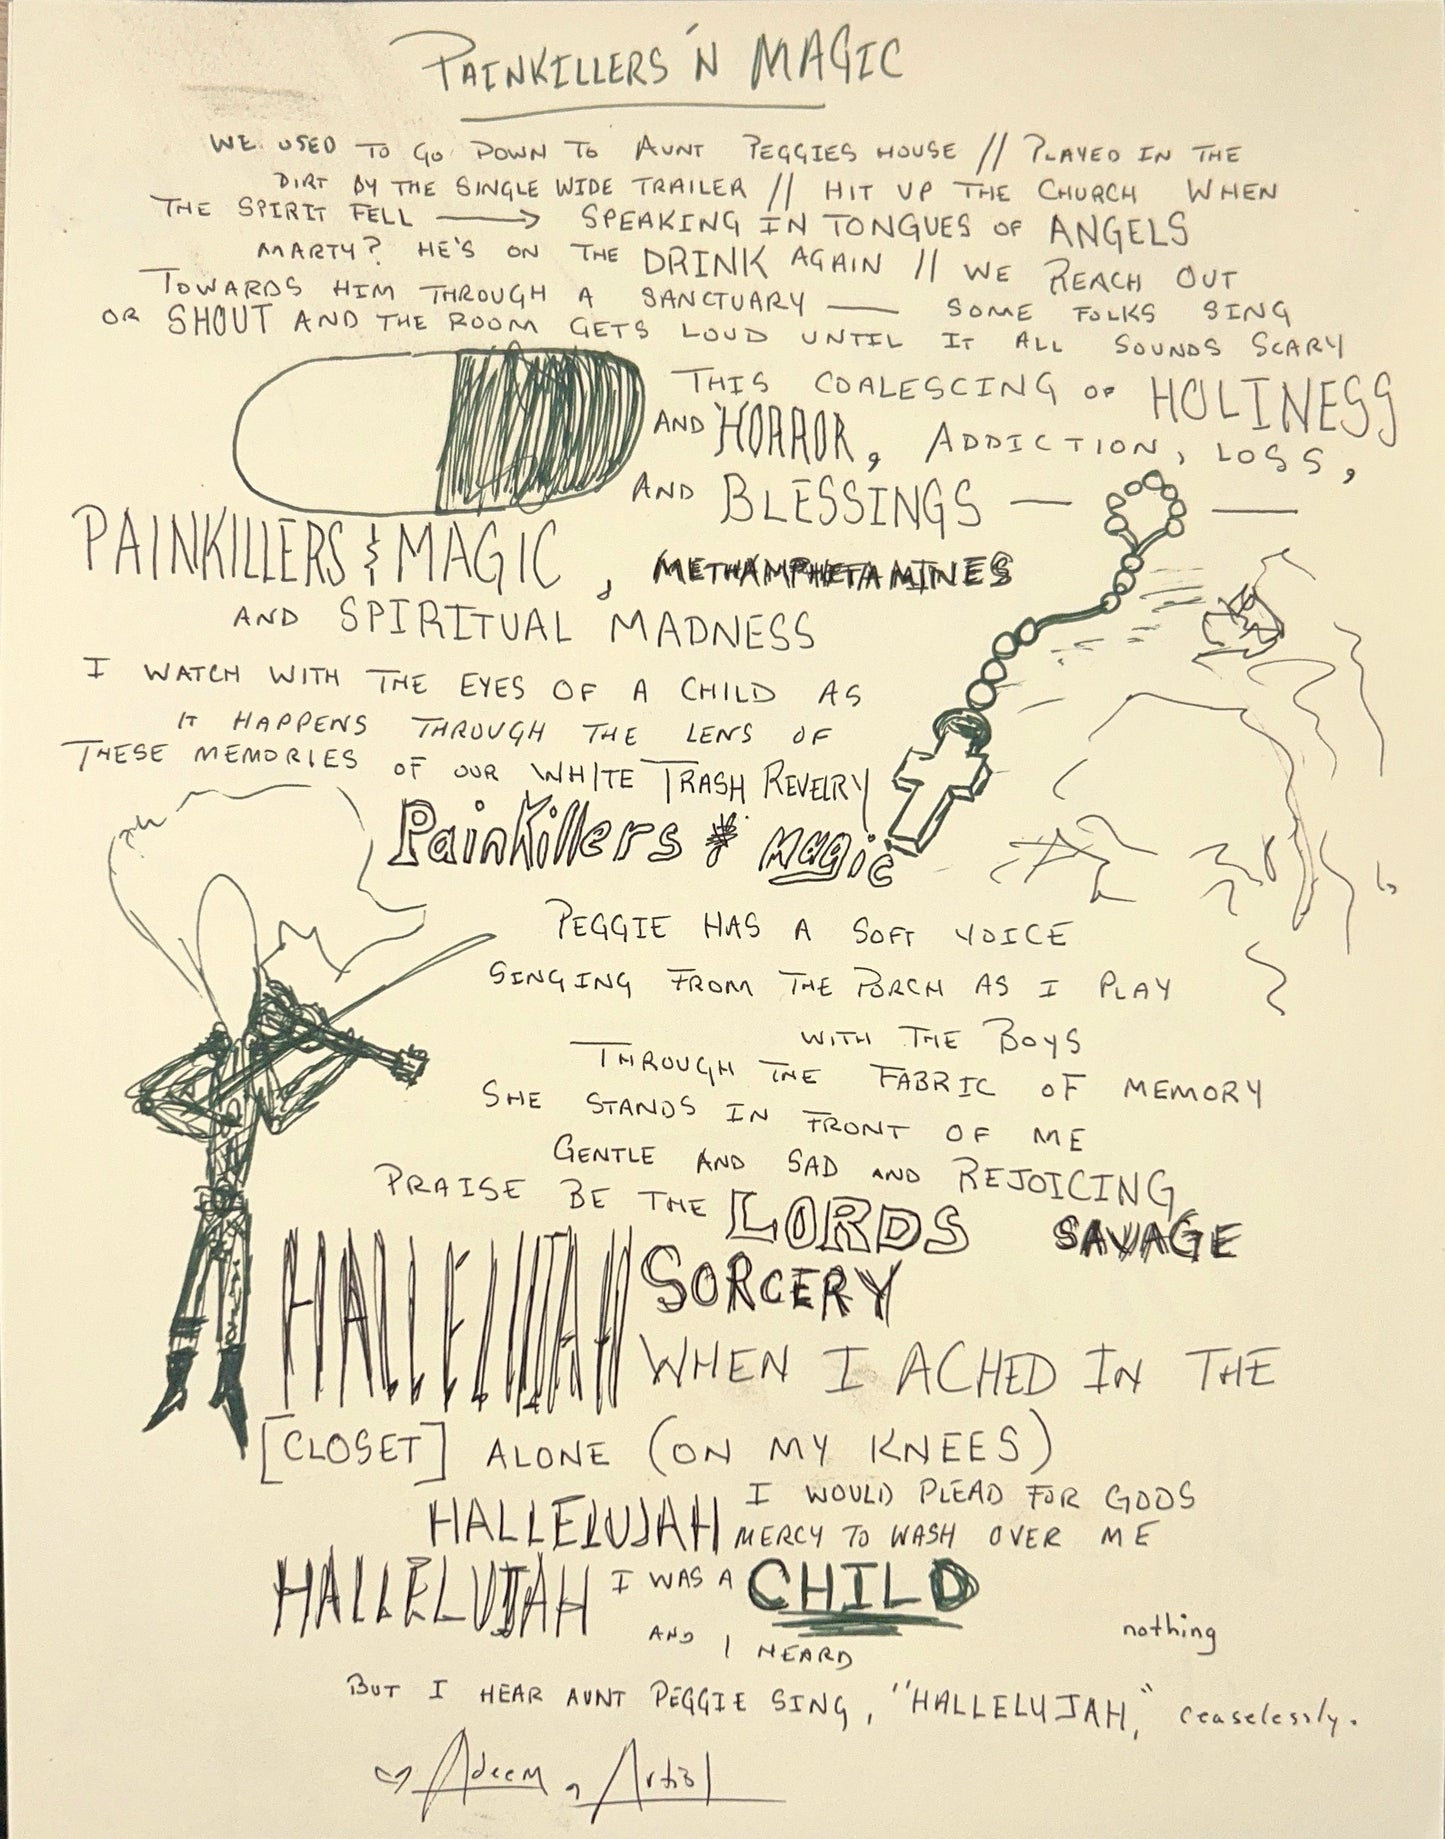 PAINKILLERS 'N MAGIC
WE USED TO GO DOWN TO AUNT PEGGIES HOUSE // PLAYED IN THE
DIRT BY THE SINGLE WIDE TRAILER // HIT UP THE CHURCH WHEN
THE SPIRIT FELL ⟶ SPEAKING IN TONGUES OF ANGELS
MARTY? HE'S ON THE DRINK AGAIN // WE REACH OUT
TOWARDS HIM THROUGH A SANCTUARY — SOME FOLKS SING
OR SHOUT AND THE ROOM GETS LOUD UNTIL IT ALL SOUNDS SCARY
THIS COALESCING OF HOLINESS
AND HORROR, ADDICTION, LOSS,
AND BLESSINGS — —
PAINKILLERS & MAGIC, METHAMPHETAMINES
AND SPIRITUAL MADNESS
I WATCH WITH THE EYES OF A CHILD AS
IT HAPPENS THROUGH THE LENS OF
THESE MEMORIES OF OUR WHITE TRASH REVELRY
PainKillers & Magic
PEGGIE HAS A SOFT VOICE
SINGING FROM THE PORCH AS I PLAY
WITH THE BOYS
THROUGH THE FABRIC OF MEMORY
SHE STANDS IN FRONT OF ME
GENTLE AND SAD AND REJOICING
PRAISE BE THE LORDS SAVAGE
SORCERY
HALLELUJAH WHEN I ACHED IN THE
[CLOSET] ALONE (ON MY KNEES)
HALLELUJAH I WOULD PLEAD FOR GODS
MERCY TO WASH OVER ME
HALLELUJAH I WAS A CHILD
AND I HEARD nothing
BUT I HEAR AUNT PEGGIE SING, "HALLELUJAH," ceaselessly.
Adeem, Artist